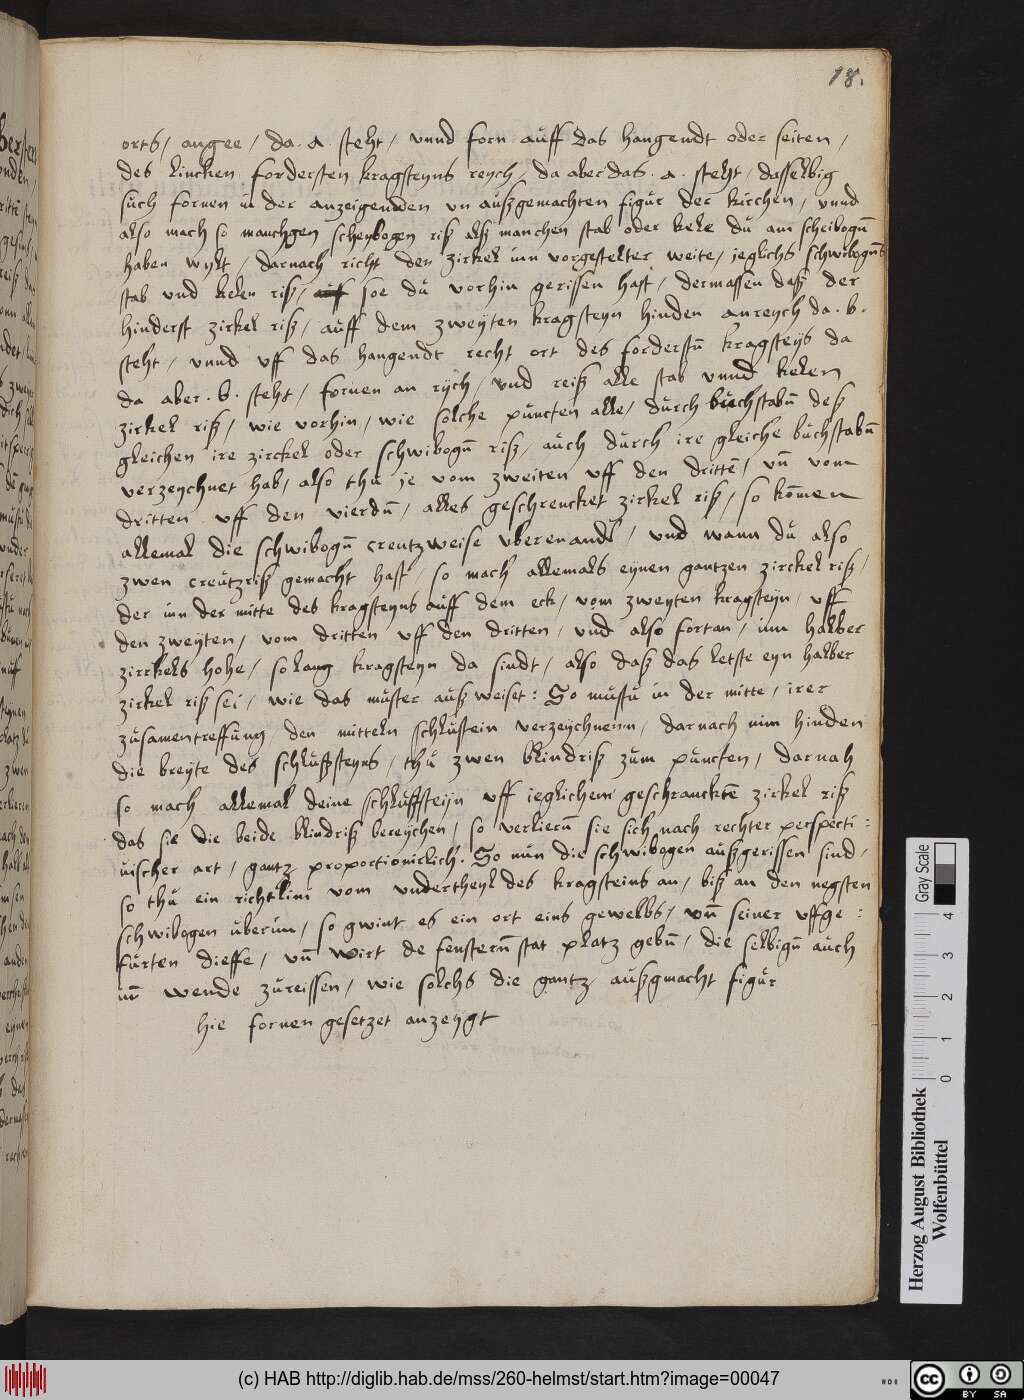 18.
orts, angee, da. a. steht, vnnd forn auff das hangendt oder seiten,
des lincken fordersten kragsteyns reych, da aber das. a. steht, dasselbig
such fornen in der anzeigenden vn außgemachten figur der kirchen, vnnd
also mach so manchgen scheybogen riß alß manchen stab oder kele du am scheibogn̄
haben wylt, darnach richt den zirkel inn vorgestelter weite, jeglichs schwibogn̄s
stab vnd kelen riß, auff soe du vorhin gerissen hast, dermassen deß der
hinderst zirkel riß, auff dem zweÿten kragsteyn hinden anreych da. b.
steht, vnnd vff das hangendt recht ort des forderstn̄ kragsteÿs da
da aber. b. steht, fornen an rÿch, vnd reiß alle stab vnnd kelen
zirkel riß, wie vorhin, wie solche puncten alle, durch buchstabn̄ deß
gleichen ire zirckel oder schwibogn̄ riß, auch durch ire gleiche buchstabn̄
verzeychnet hab, also thu je vom zweiten vff den drittē, vn̄ vom
dritten vff den vierdn̄, alles geschrencket zirkel riß, so kōmen
allemal die schwibogn̄ creutzweise vberenandr, vnd wann du also
zwen creutzriß gemacht hast, so mach allemals eynen gantzen zirckel riß,
der inn der mitte des kragsteyns auff dem eck, vom zweyten kragsteyn, vff
den zweyten, vom dritten vff den dritten, vnd also fortan, inn halber
zirckels hohe, so lang kragsteyn da sindt, also daß das letste eyn halber
zirkel riß sei, wie das muster auß weiset: So mustu in der mitte, irer
zusamentreffung, den mitteln schlustein verzeychnenn, darnach nim hinden
die breyte des schlußsteyns, thu zwen blindriß zum puncten, darnah
so mach allemal deine schlußsteÿn vff ieglichem geschranckte zirkel riß
das sie die beide blindriß bereychen, so verliern̄ sie sich nach rechter perspecti:
uischer art, gantz proportionirlich. So nun die schwibogen außgerissen sind,
so thu ein richtlini vom vndertheyl des kragsteins an, biß an den negsten
schwibogen uberun, so gwint es ein ort eins gewelbs, vn̄ seiner vffge:
furten dieffe, vn̄ wirt de fenstern̄ stat platz gebn̄, die selbign̄ auch
inn wende zureissen, wie solchs die gantz außgmacht figur
hie fornen gesetzet anzeygt
Gray Scale
0 1 2 3 4
Herzog August Bibliothek
Wolfenbüttel
(c) HAB http://diglib.hab.de/mss/260-helmst/start.htm?image=00047
cc BY SA